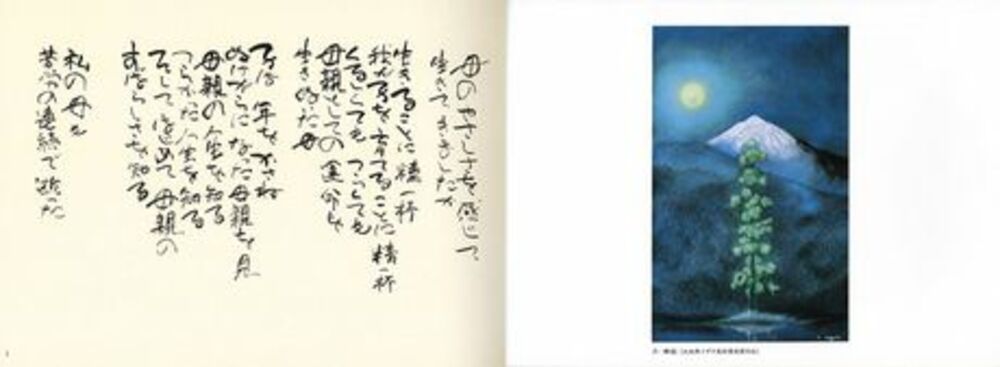 母のやさしさを感じつ
生きてきましたか
生きることに精一杯
私たちを育てることに精一杯
くるしくても つらくても
母親としての運命を
生きぬいた母
子は 年をかさね
ぬけがらになった母親を見
母親の人生を知る
つらかった人生を知る
そして はじめて 母親の
すばらしさを知る
私の母も
苦労の連続で逝った